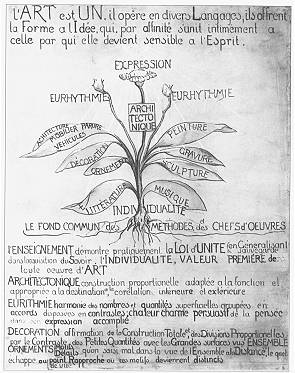 l'ART est UN. il opère en divers Langages, ils offrent
la Forme à l'Idée, qui, par affinité s'unit intimément à
celle par qui elle devient sensible à l'Esprit.
EXPRESSION
EURHYTHMIE
EURHYTHMIE
ARCHI
TECTO
NIQUE
ARCHITECTURE
MOBILIER PARURE
VEHICULES
PEINTURE
DECORATION
GRAVURE
ORNEMENT
SCULPTURE
LITTERATURE
MUSIQUE
INDIVIDUALITÉ
LE FOND COMMUN des METHODES des CHEFS D'OEUVRES
l'ENSEIGNEMENT démontre pratiquement la LOI d'UNITÉ en Généralisant
du Savoir. l'INDIVIDUALITÉ, VALEUR PREMIÈRE de
toute oeuvre d'ART
ARCHITECTONIQUE construction proportionnelle adaptée à la fonction et
appropriée à la destination corélation intérieure et extérieure
EURITHMIE harmonie des nombres et quantités superficielles groupées en
accords dosées en contrastes; chaleur charme persuasif de la pensée
dans son expression accomplie
DECORATION affirmation de la Construction Totale, des Divisions Proportionnelles
par le Contraste, des Petites Quantités avec les Grandes surfaces vus ENSEMBLE
ORNEMENTS Motifs
Détails qu'on saisi mal dans la vue de l'Ensemble à la Distance, le quel
échappe au point de vue Rapproché où les motifs deviennent distincts